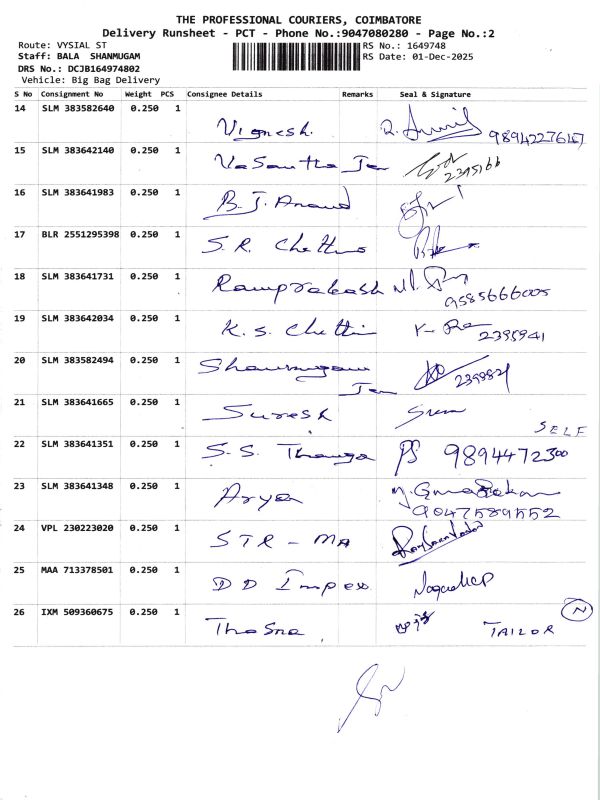 THE PROFESSIONAL COURIERS, COIMBATORE
Delivery Runsheet - PCT - Phone No.:9047080280 - Page No.:2
Route: VYSIAL ST RS No.: 1649748
Staff: BALA SHANMUGAM RS Date: 01-Dec-2025
DRS No.: DCJB164974802
Vehicle: Big Bag Delivery
S No Consignment No Weight PCS Consignee Details Remarks Seal & Signature
14 SLM 383582640 0.250 1 Vignesh.
15 SLM 383642140 0.250 1 Vasantha Jew
16 SLM 383641983 0.250 1 B.J. Anand
17 BLR 2551295398 0.250 1 S.R. Chettiar
18 SLM 383641731 0.250 1 Ramprakash
9585666005
19 SLM 383642034 0.250 1 K.S. Chetti
2395941
20 SLM 383582494 0.250 1 Shanmugam
Jew
21 SLM 383641665 0.250 1 Suresh
SELF
22 SLM 383641351 0.250 1 S.S. Thanga PS 9894472300
23 SLM 383641348 0.250 1 Arya
9047589552
24 VPL 230223020 0.250 1 STR - MA
25 MAA 713378501 0.250 1 DD Impex
26 IXM 509360675 0.250 1 N
TAILOR